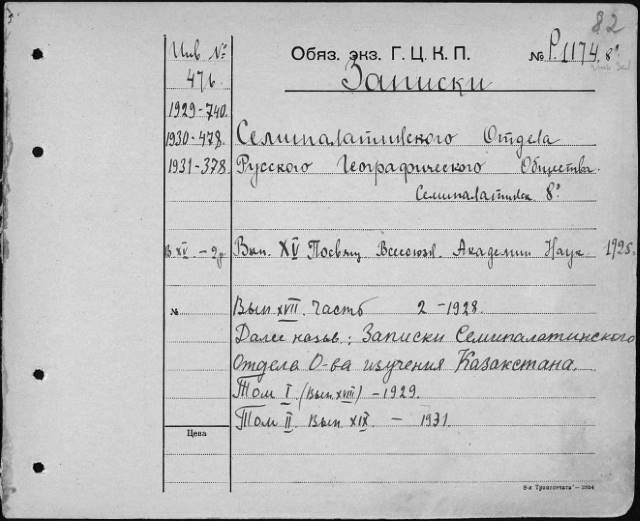 82
Инв №
Обяз. экз. Г. Ц. К. П.
№ Р.1174. 8°
476
Записки
1929-740.
1930-478.
Семипалатинского Отдела
1931-378.
Русского Географического Общества.
Семипалатинск 8°
В XV – 2р
Вып. XV Посвящ Всесоюзн. Академии Наук 1925.
№
Вып XVII. Часть 2 – 1928.
Далее назыв.: Записки Семипалатинского
Отдела О-ва изучения Казакстана.
Том I. (Вып XVIII) – 1929.
Том II. Вып XIX – 1931.
Цена
8-я Транспечать – 2824